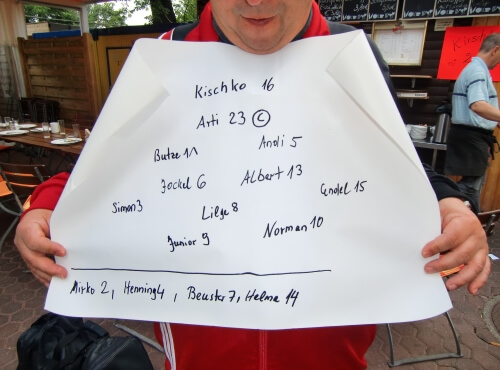 Kischko 16
Arti 23 ©
Butze 11 Andi 5
Jockel 6 Albert 13
Simon 3 Lilge 8 Endel 15
Junior 9 Norman 10
Mirko 2, Henning 4, Beuster 7, Helme 14